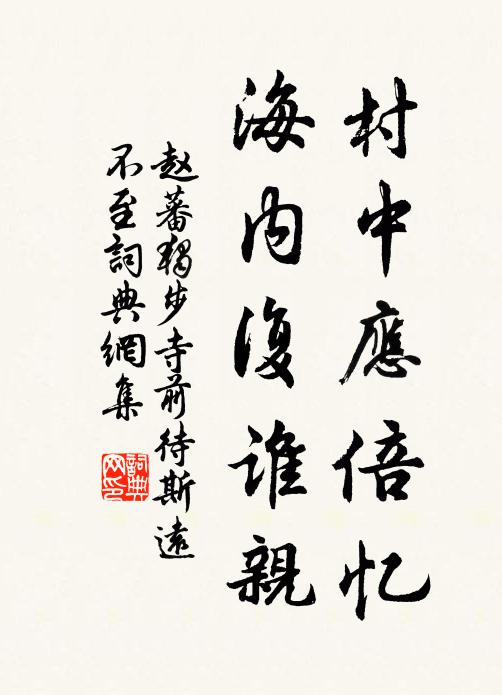 村中應倍忆
海内復谁親
赵蕃獨步寺前待斯遠
不至詞典網集
詞典网印